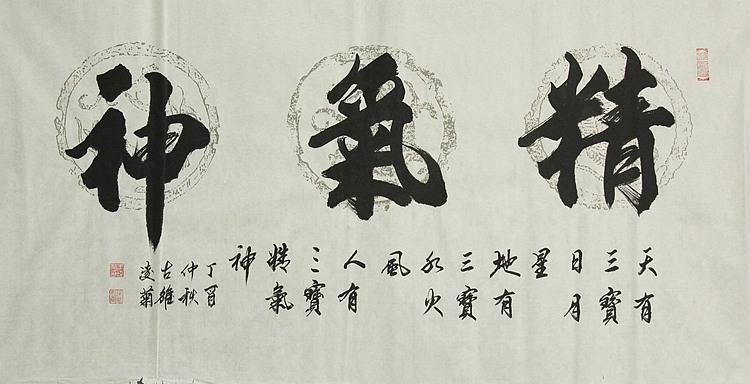 精氣神
天有
三寶
日月
星
地有
三寶
水火
風
人有
三寶
精氣
神
丁酉
仲秋
古
凌菊